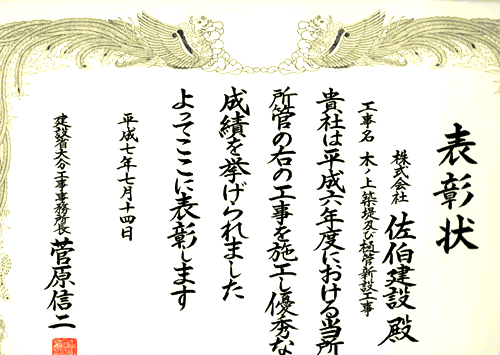 表彰状
株式会社 佐伯建設 殿
工事名 木ノ上築堤及び樋管新設工事
貴社は平成六年度における当所
所管の右の工事を施工し優秀な
成績を挙げられました
よってここに表彰します
平成七年七月十四日
建設省大分工事事務所長 菅原信二